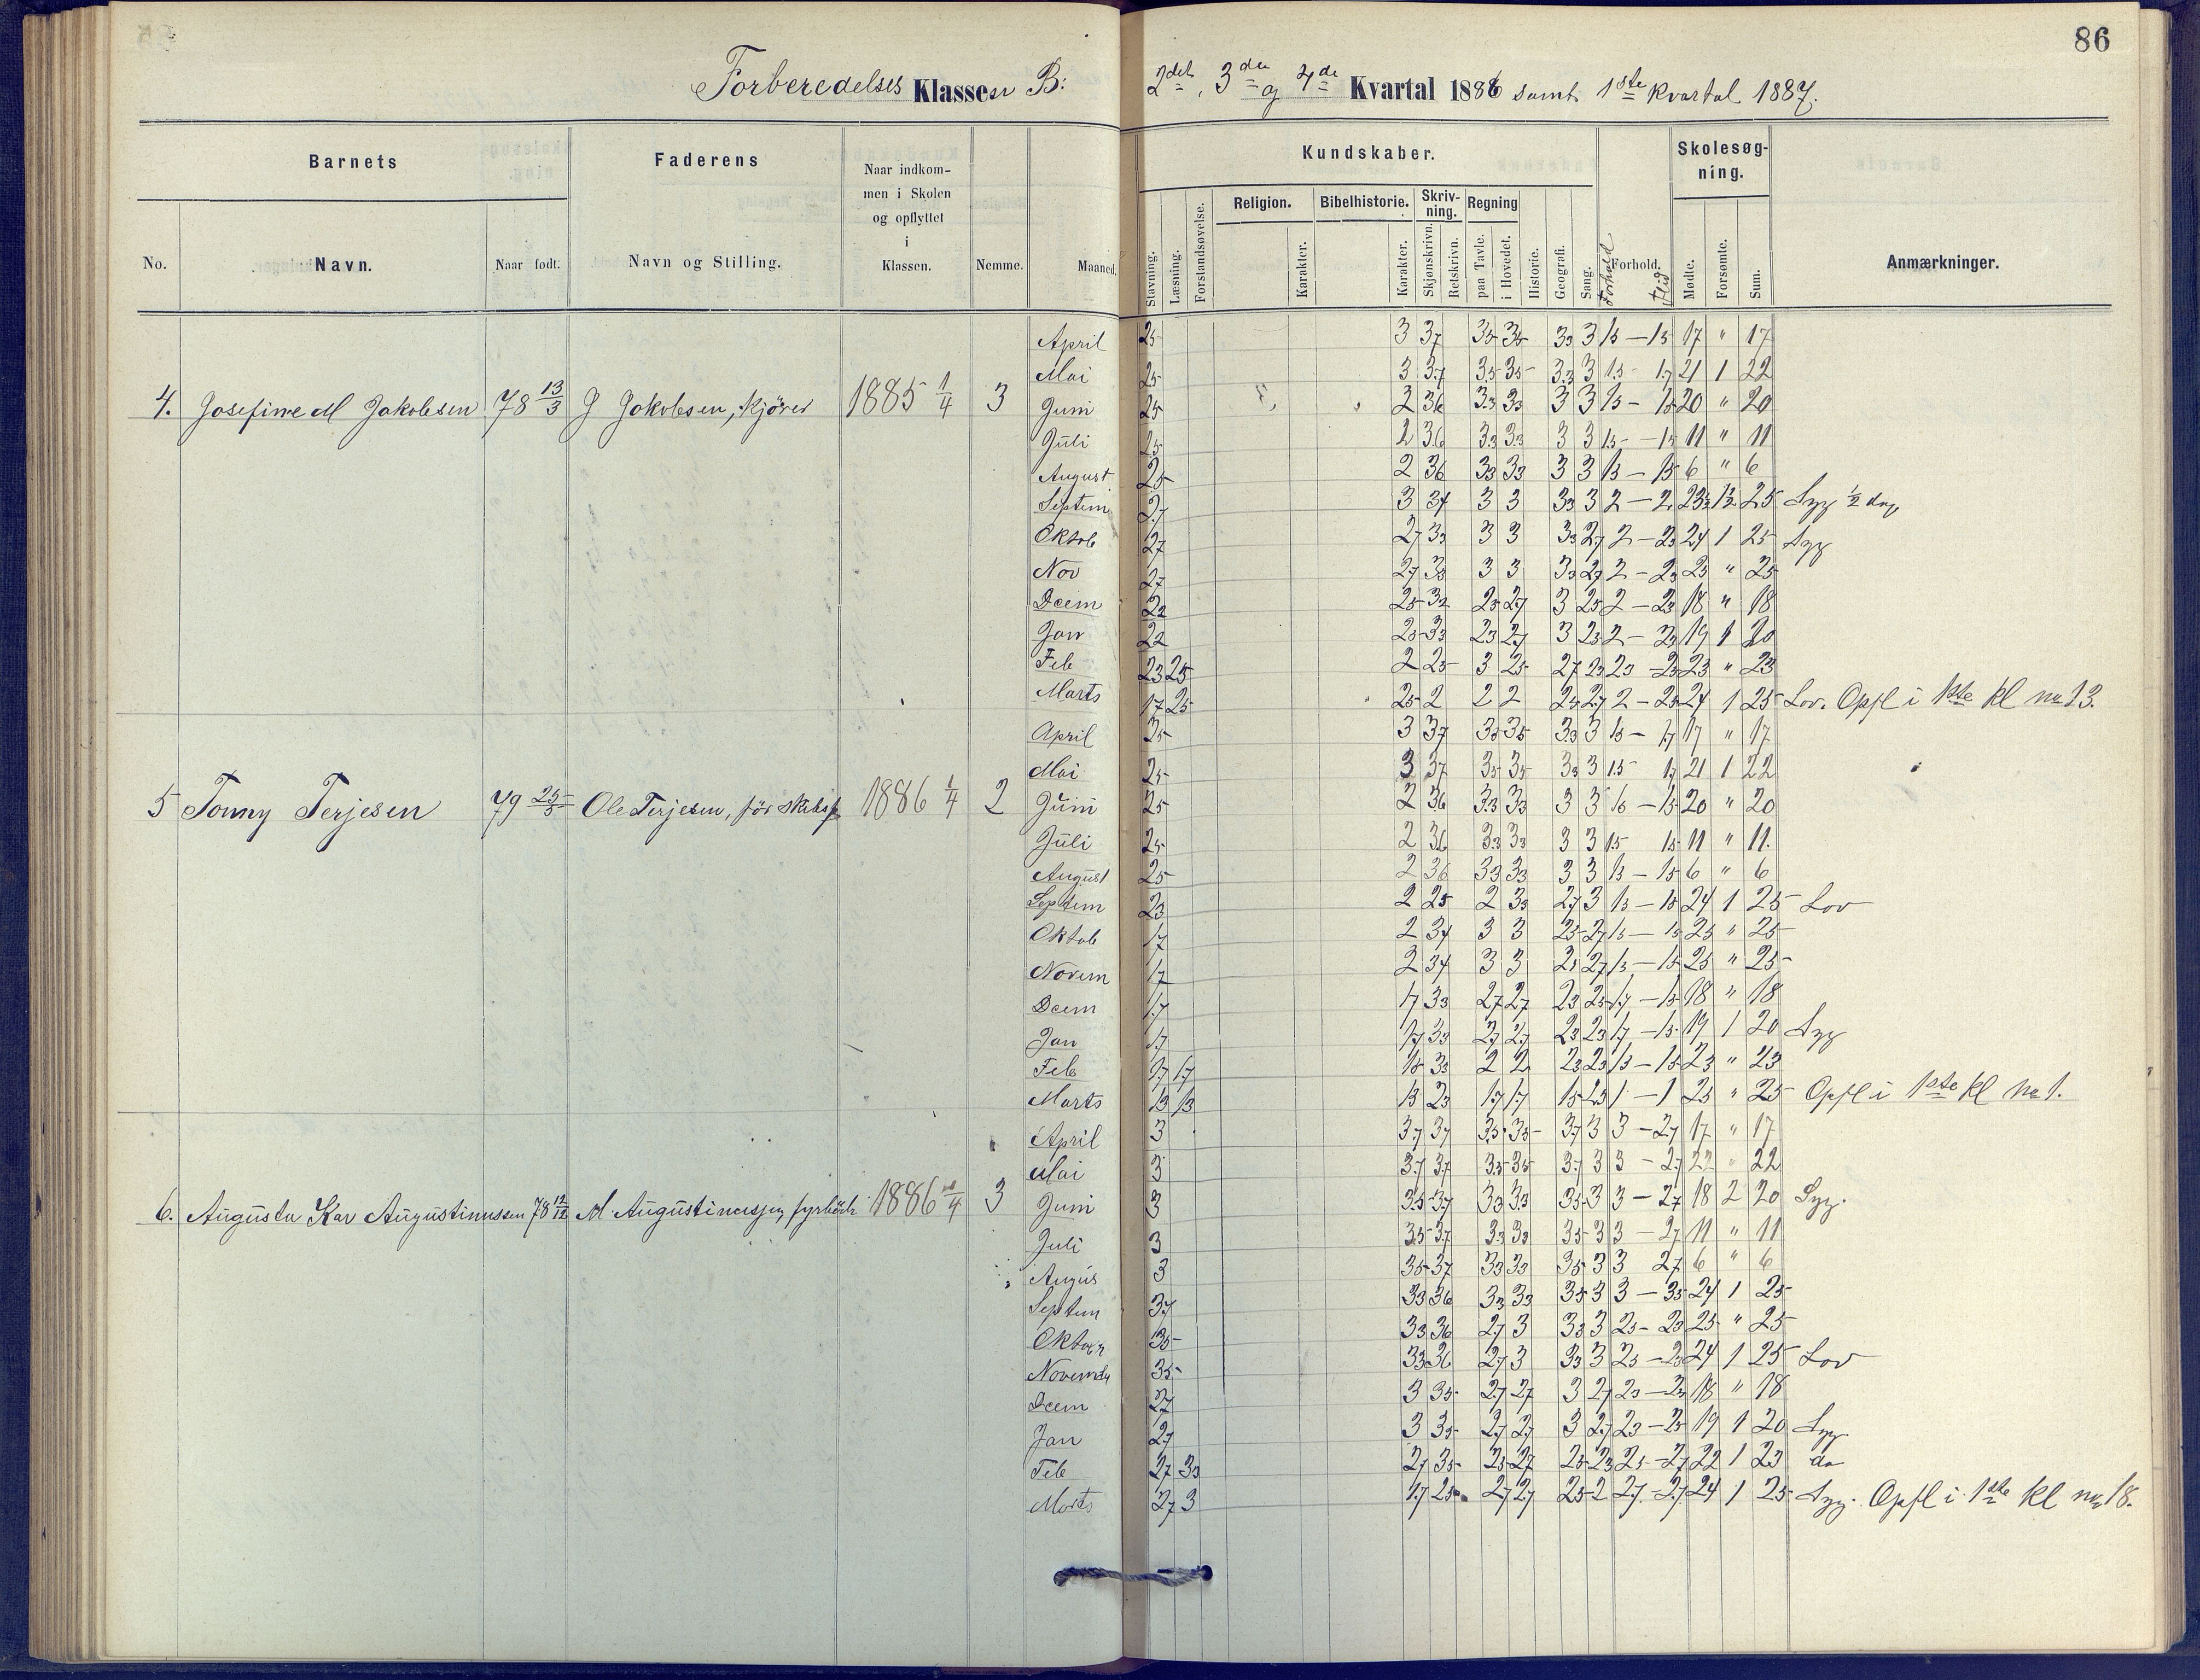 86
Forberedelses Klassen B: 2det, 3die og 4de Kvartal 1886 samt 1ste Kvartal 1887.
Barnets Faderens Naar indkom-
men i Skolen
og opflyttet
i
Klassen. Kundskaber. Skolesøg-
ning.
Religion. Bibelhistorie. Skriv-
ning. Regning
No. Navn. Naar født. Navn og Stilling. Nemme. Maaned. Stavning. Læsning. Forstandsøvelse. Karakter. Karakter. Skjønskrivn. Retskrivn. paa Tavle. i Hovedet. Historie. Geografi. Sang. Forhold Forhold. Flid Mødte. Forsømte. Sum. Anmærkninger.
April 25 3 37 35 35 33 3 15 — 15 17 " 17
Mai 25 3 3.7 3.5 35 3.3 3 1.5 - 17 21 1 22
4. Josefine M Jakobsen 78 13/3 J Jakobsen, Kjører 1885 1/4 3 Juni 25 2 36 33 33 3 3 15 - 15 20 " 20
Juli 25 2 36 33 33 3 3 15 - 15 11 " 11
August 25 2 36 33 33 3 3 15 - 15 6 " 6
Septem 27 3 34 3 3 33 3 2 — 2 23½ 1½ 25 Syg ½ dag
Oktob 27 27 33 3 3 33 27 2 — 23 24 1 25 Syg
Nov 27 27 33 3 3 33 27 2 - 23 25 " 25
Dcem 22 25 32 25 27 3 25 2 — 23 18 " 18
Jan 22 25 33 23 27 3 23 2 - 23 19 1 20
Feb 23 25 2 25 3 25 27 23 23 - 23 23 " 23
Marts 17 25 25 2 2 2 25 27 2 - 23 24 1 25 Lov. Opfl i 1ste kl no 13.
April 25 3 37 35 35 33 3 15 - 17 17 " 17
Mai 25 3 37 35 35 33 3 15 17 21 1 22
5 Tomy Terjesen 79 25/5 Ole Terjesen, för skibsf 1886 1/4 2 Juni 25 2 36 3.3 33 3 3 15 - 15 20 " 20
Juli 25 2 36 33 33 3 3 15 15 11 " 11.
August 25 2 36 33 33 3 3 15 - 15 6 " 6
Septem 23 2 25 2 33 27 3 15 - 15 24 1 25 Lov
Oktob 17 2 34 3 3 25 27 15 - 15 25 " 25
Novem 17 2 34 3 3 25 27 15 - 15 25 " 25
Dcem 1.7 17 33 27 27 23 25 17 - 15 18 " 18
Jan 17 17 33 27 27 23 23 17 - 15 19 1 20 Syg
Feb 17 17 15 33 2 2 23 23 15 - 15 23 " 23
Marts 13 13 13 23 17 17 15 23 1 - 1 25 " 25 Opfl i 1ste kl No 1.
April 3 37 37 35 35 37 3 3 - 27 17 " 17
Mai 3 37 37 35 35 37 3 3 - 27 22 " 22
6. Augusta Kar Augustinussen 78 12/12 M Augustinussen, fyrböd 1886 1/4 3 Juni 3 35 37 33 33 35 3 3 - 27 18 2 20 Syg.
Juli 3 35 37 33 33 35 3 3 - 27 11 " 11
Augus 3 35 37 33 33 35 3 3 27 6 " 6
Septem 37 33 36 33 33 35 3 3 - 35 24 1 25
Oktober 35 33 36 27 3 33 3 25 - 23 25 " 25
Novemb 35 33 36 27 3 33 3 25 - 23 24 1 25 Lov
Dcem 27 3 35 27 27 3 27 23 - 23 18 " 18
Jan 27 3 35 27 27 3 27 23 - 25 19 1 20 Syg
Feb 27 33 27 35 25 27 25 23 25 - 27 22 1 23 do
Marts 27 3 17 25 27 27 25 2 27 - 27 24 1 25 Syg. Opfl i 1ste kl no 18.